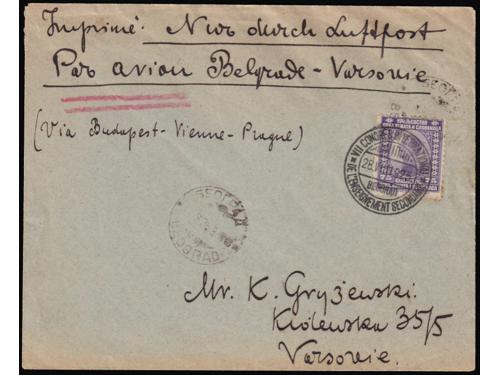 Imprimé. Nur durch Luftpost
Par avion Belgrade - Varsovie
(Via Budapest - Vienne - Prague)
VII CONGRES INTERNATIONAL
DE L'ENSEIGNEMENT SECONDAIRE
BEOGRAD
Mr. K. Gryżewski.
Królewska 35/5
Varsovie.